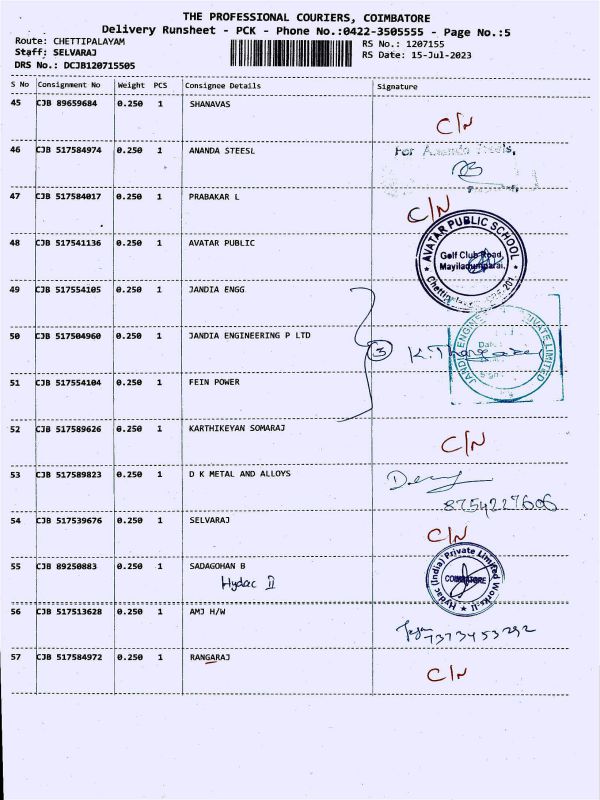 THE PROFESSIONAL COURIERS, COIMBATORE
Delivery Runsheet - PCK - Phone No.:0422-3505555 - Page No.:5
Route: CHETTIPALAYAM RS No.: 1207155
Staff: SELVARAJ RS Date: 15-Jul-2023
DRS No.: DCJB120715505
S No Consignment No Weight PCS Consignee Details Signature
45 CJB 89659684 0.250 1 SHANAVAS
C/N
46 CJB 517584974 0.250 1 ANANDA STEESL For Ananda Steels,
47 CJB 517584017 0.250 1 PRABAKAR L
C/N
48 CJB 517541136 0.250 1 AVATAR PUBLIC
AVATAR PUBLIC SCHOOL
Golf Club Road,
Mayiladumparai,
49 CJB 517554105 0.250 1 JANDIA ENGG.
50 CJB 517504960 0.250 1 JANDIA ENGINEERING P LTD
3
51 CJB 517554104 0.250 1 FEIN POWER
52 CJB 517589626 0.250 1 KARTHIKEYAN SOMARAJ
C/N
53 CJB 517589823 0.250 1 D K METAL AND ALLOYS
8754227606
54 CJB 517539676 0.250 1 SELVARAJ
C/N
55 CJB 89250883 0.250 1 SADAGOHAN B
Hydac II
Hydac (India) Private Limited
COIMBATORE
Works-II
56 CJB 517513628 0.250 1 AMJ H/W
7373453292
57 CJB 517584972 0.250 1 RANGARAJ
C/N